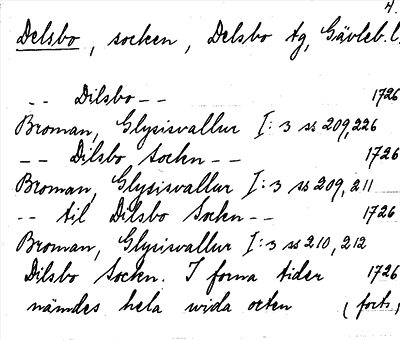 4.
Delsbo, socken, Delsbo tg, Gävleb. l.
-- Dilsbo -- 1726
Broman, Glysisvallur I: 3 ss 209, 226
-- Dilsbo Sockn -- 1726
Broman, Glysisvallur I: 3 ss 209, 211
-- til Dilsbo Sockn -- 1726
Broman, Glysisvallur I: 3 ss 210, 212
Dilsbo Socken. I forna tider 1726
nämdes hela wida orten (forts.)